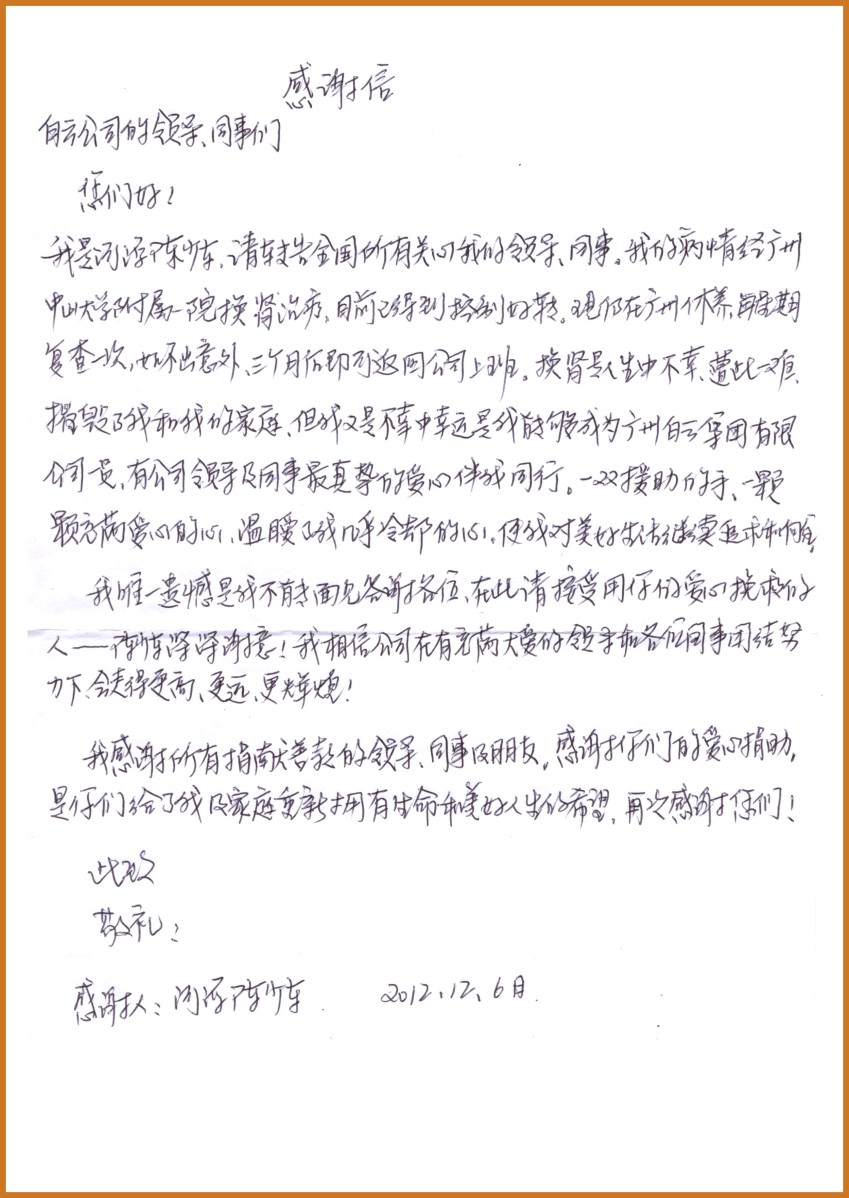 感谢信
白云公司的领导、同事们
您们好!
我是河源陈少东,请转告全国所有关心我的领导、同事。我的病情经广州
中山大学附属一院换肾治疗,目前已得到控制好转。现仍在广州休养,每星期
复查一次,如不出意外、三个月后即可返回公司上班。换肾是人生中不幸、遭此一难、
摧毁了我和我的家庭、但我又是不幸中幸运是我能够成为广州白云集团有限
公司一员、有公司领导及同事最真挚的爱心伴我同行。一双援助的手、一颗
颗充满爱心的心、温暖了我几乎冷却的心,使我对美好生活继续追求和向往,
我唯一遗憾是我不能面见答谢各位、在此请接受用你们爱心挽救的
人——陈少东深深谢意!我相信公司在有充满大爱的领导和各位同事团结努
力下、会走得更高、更远、更辉煌!
我感谢所有捐献善款的领导、同事及朋友,感谢仔们的爱心捐助,
是仔们给了我及家庭重新拥有生命和美好人生的希望,再次感谢您们!
此致
敬礼!
感谢人:河源陈少东 2012.12、6日.